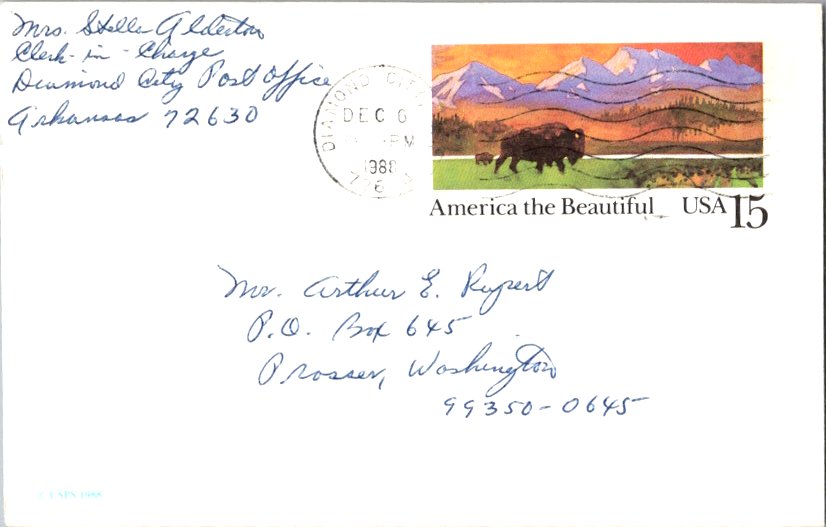 Mrs. Stella Alderton
Clerk-in-Charge
Diamond City Post Office
Arkansas 72630
DIAMOND CITY
DEC 6
PM
1988
726
America the Beautiful USA 15
Mr. Arthur E. Rupert
P.O. Box 645
Prosser, Washington
99350-0645
© USPS 1988